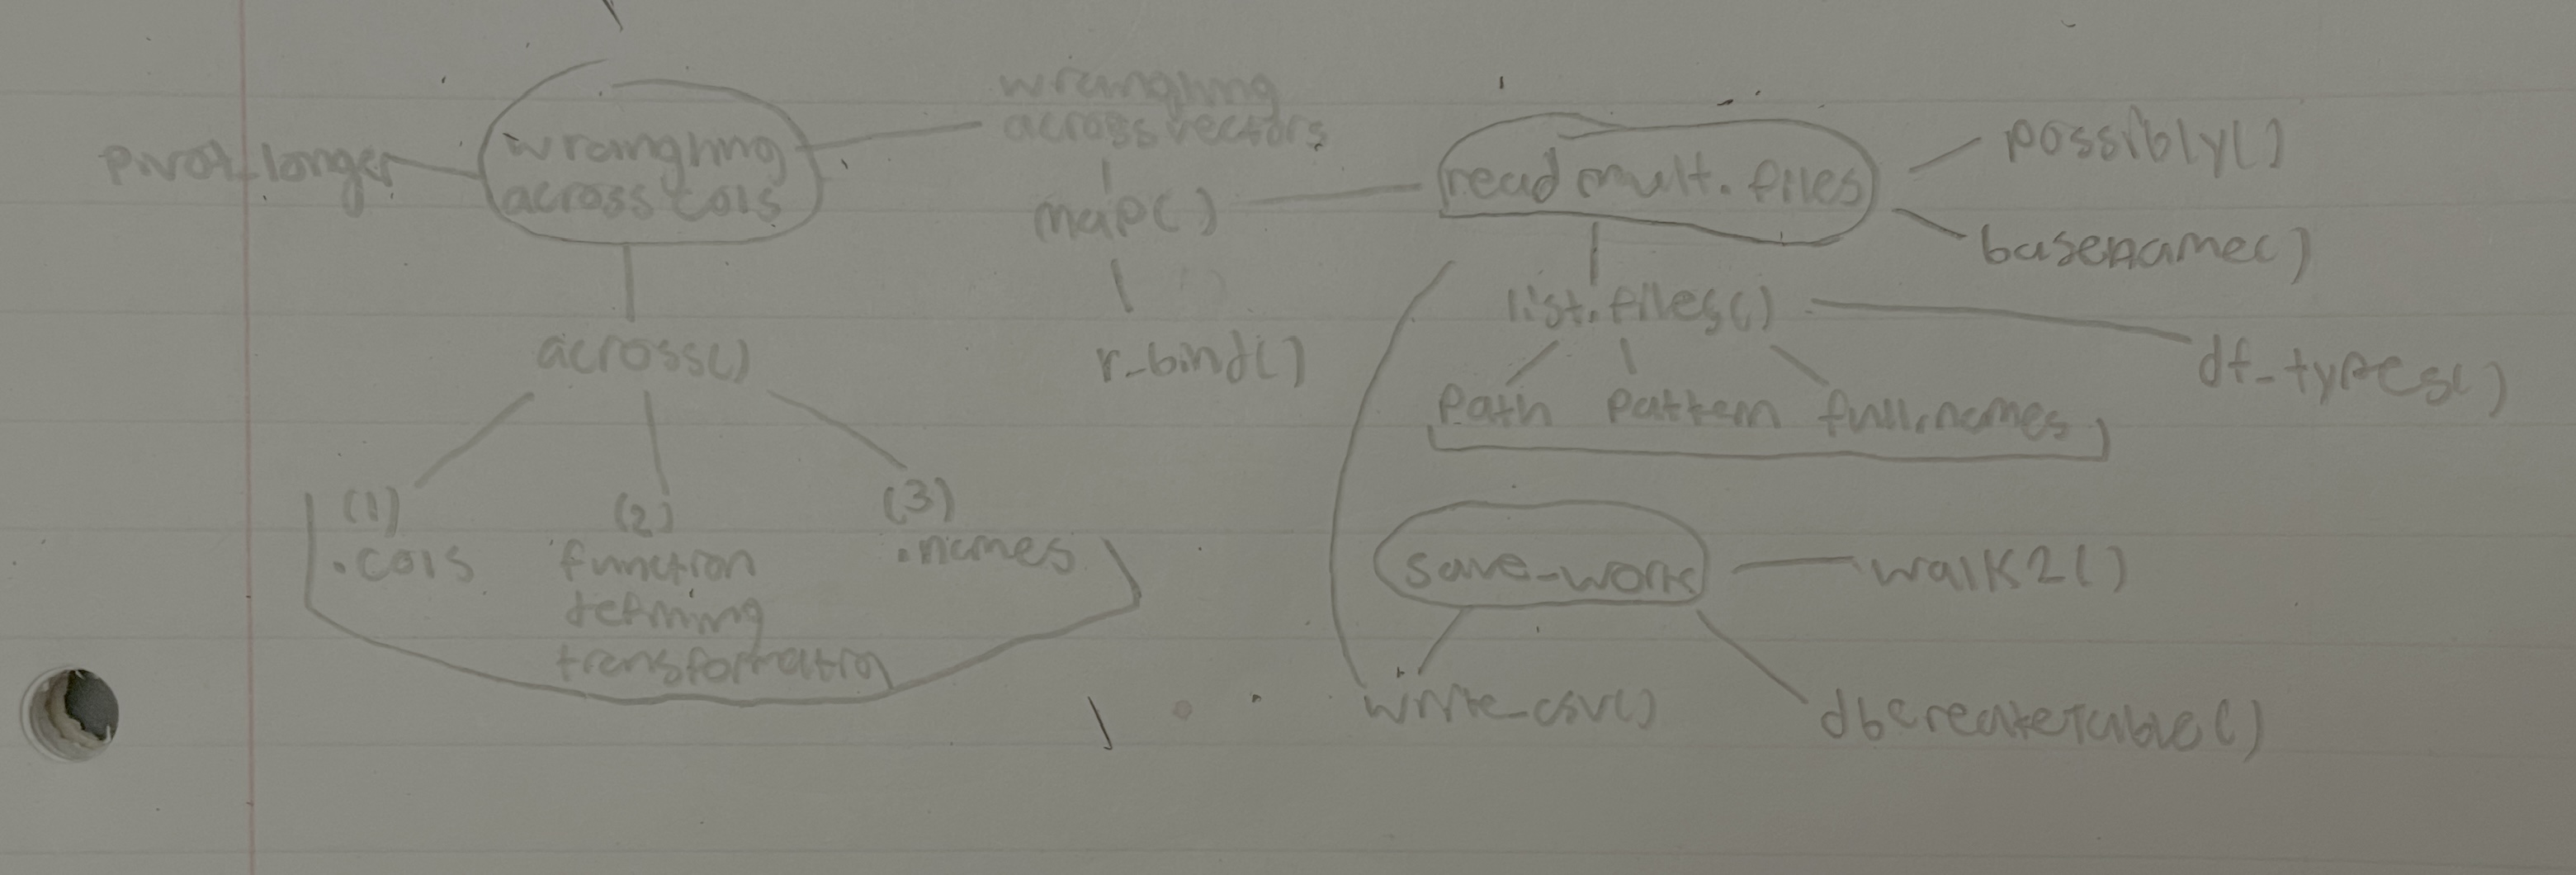 pivot_longer
wrangling
across cols
across()
(1)
.cols
(2)
function
defining
transformation
(3)
.names
wrangling
across vectors
map()
r_bind()
read mult. files
possibly()
basename()
list.files()
df_types()
path pattern full.names
save_work
walk2()
write_csv()
dbcreateTable()